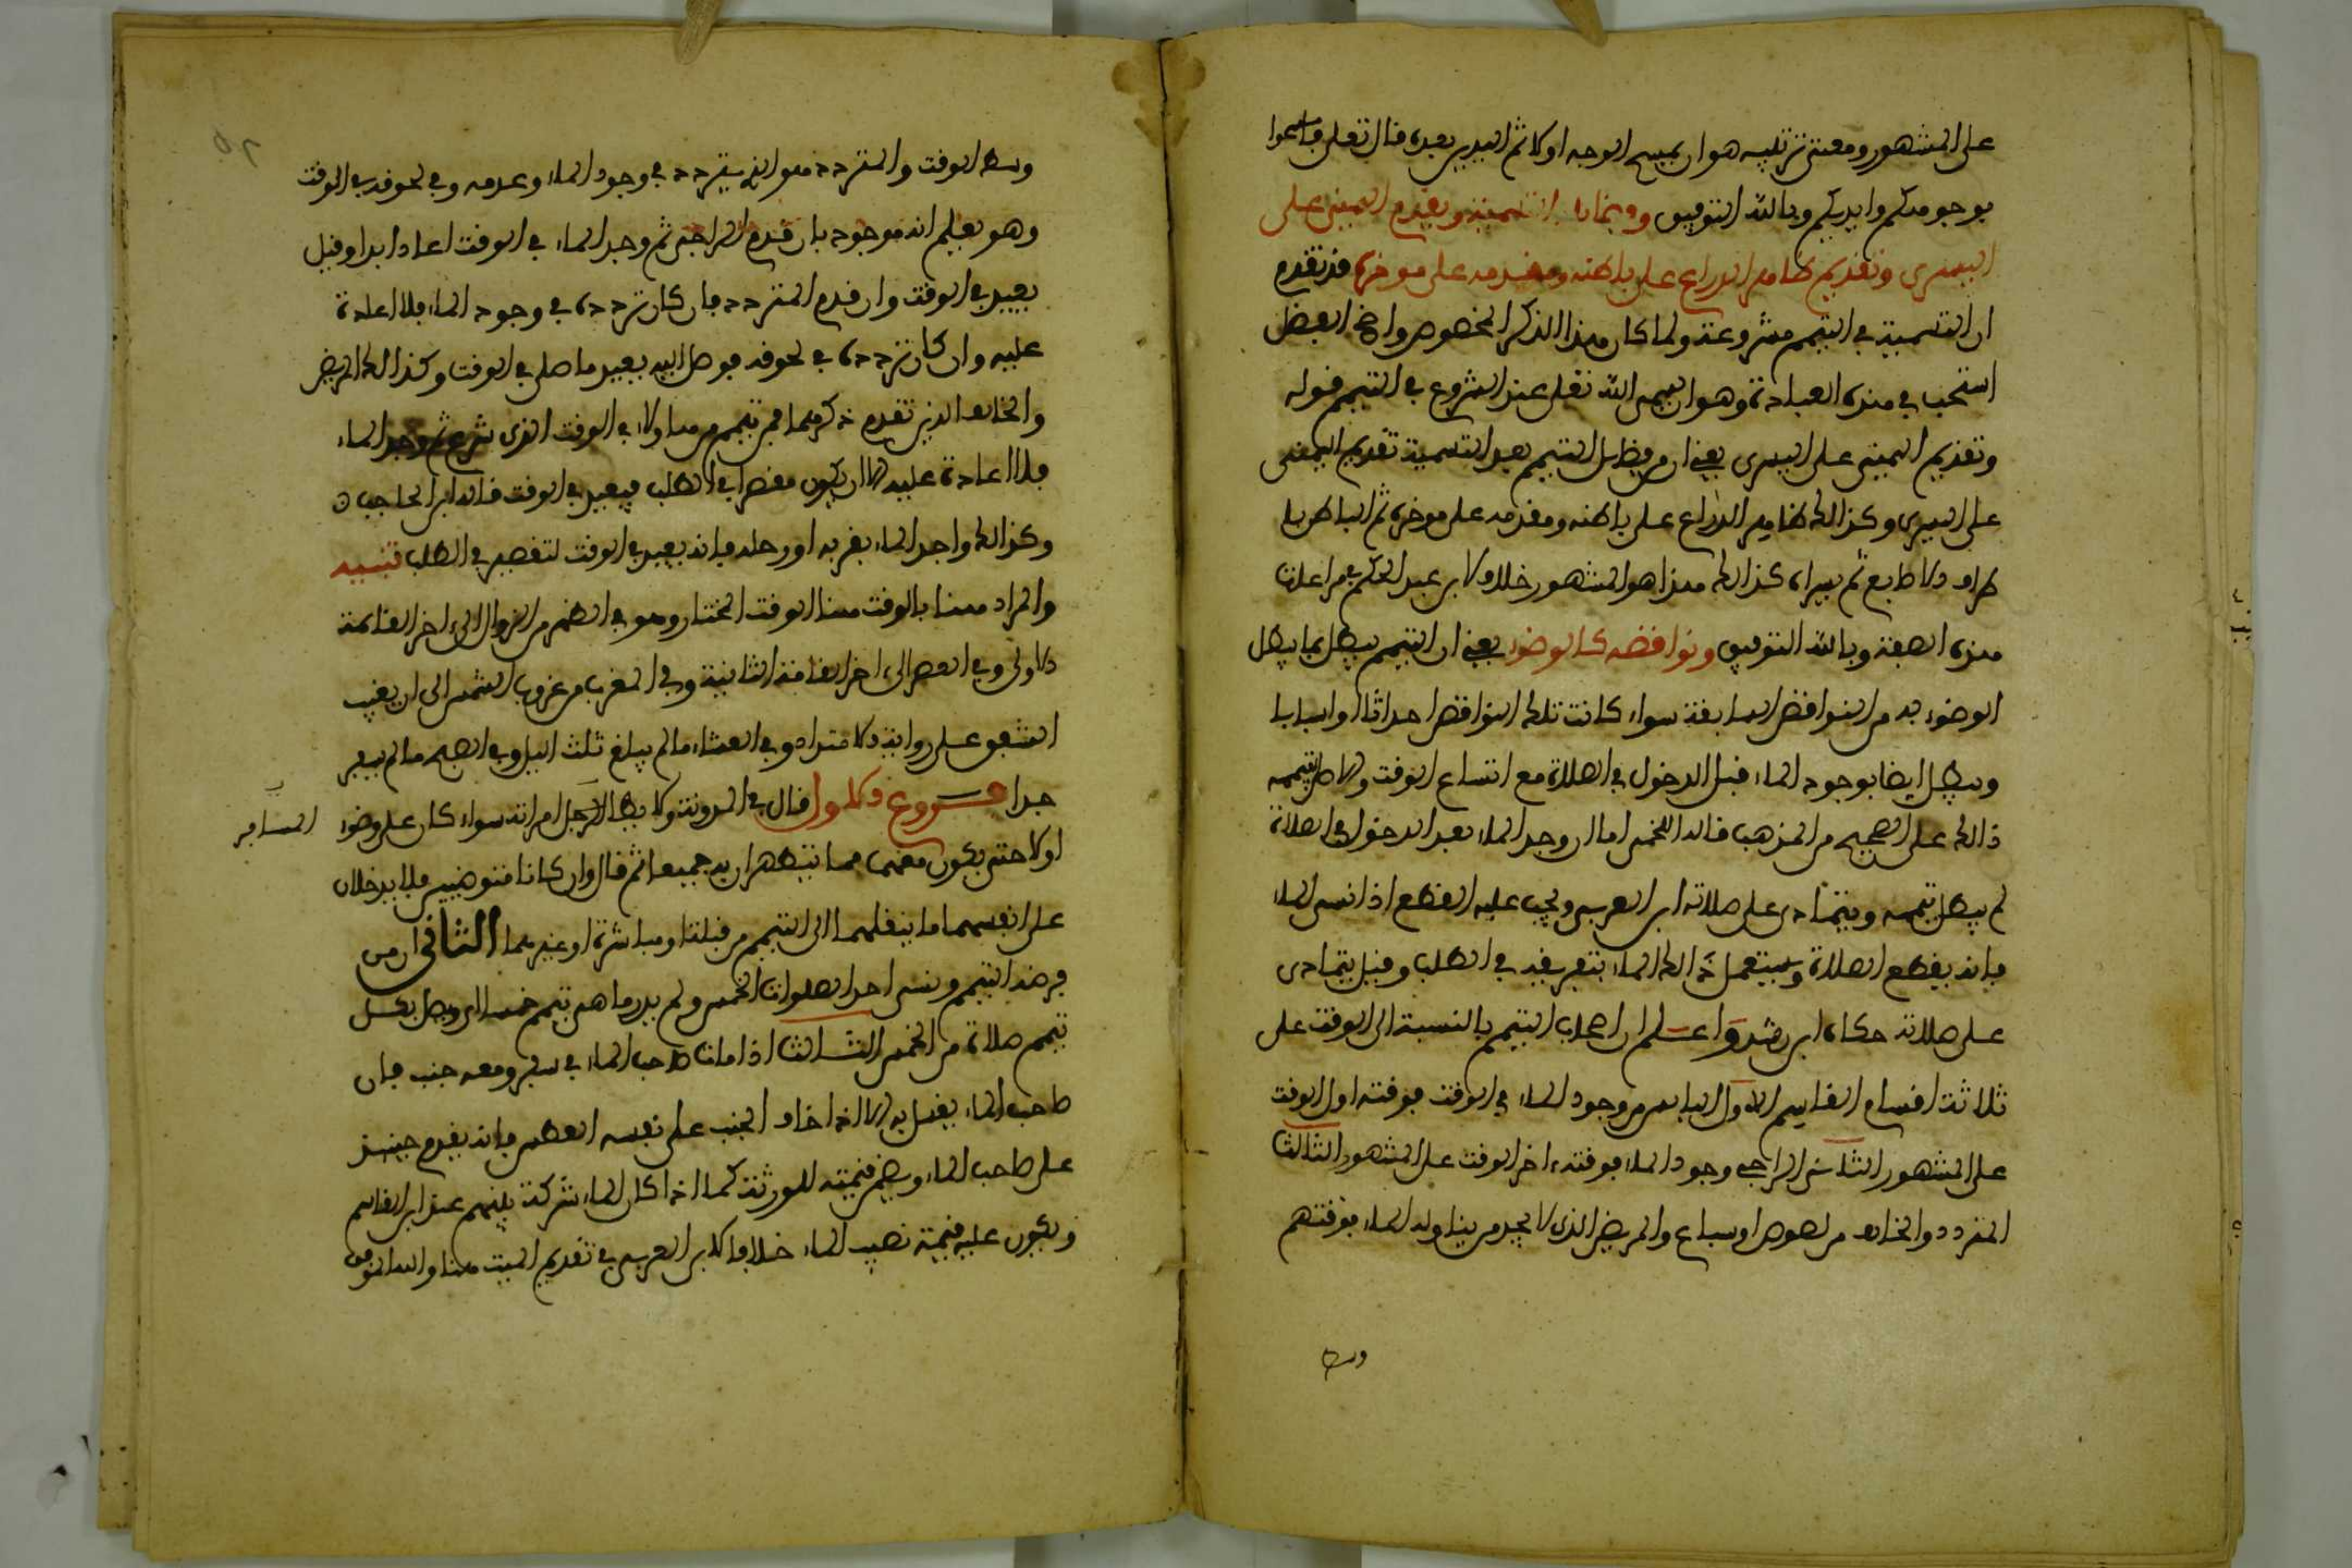 على المشهور ومعنى ترتيبه هو ان يمسح الوجه اولا ثم اليدين بعده قال تعلى فامسحوا
بوجوهكم وايديكم وبالله التوفيق وفضائله التسمية وتقديم اليمنى على
اليسرى وتقديم ظاهر الذراع على باطنه ومقدمه على موخره قد تقدم
ان التسمية في التيمم مشروعة ولما كان هذا الذكر المخصوص واضح الفضل
استحب في هذه العبادة وهو ان يسمى الله تعلى عند الشروع في التيمم قوله
وتقديم اليمنى على اليسرى يعني ان من فضايل التيمم بعد التسمية تقديم اليمنى
على اليسرى وكذالك ظاهر الذراع على باطنه ومقدمه على موخره ثم الباطن بـا
طراف الاصابع ثم يسراه كذالك هذا هو المشهور خلافا لابن عبد الحكم في مراعات
هذه الصفة وبالله التوفيق ونواقضه كالوضوء يعني ان التيمم يبطل بما يبطل
الوضوء به من النواقض السابقة سواء كانت تلك النواقض احداثا او اسبابا
ويبطل ايضا بوجود الماء قبل الدخول في الصلاة مع اتساع الوقت والاصل تيممه
ذالك على الصحيح من المذهب قاله اللخمي اما ان وجد الماء بعد الدخول في الصلاة
لم يبطل تيممه ويتمادى على صلاته ابن العربي ويجب عليه القطع اذا نسي الماء
فانه يقطع الصلاة ويستعمل ذالك الماء بتفريقه في الطلب وقيل يتمادى
على صلاته حكاه ابن رشد واعلم ان اصحاب التيمم بالنسبة الى الوقت على
ثلاثة اقسام القاسم الاول اليايس من وجود الماء في الوقت فوقته اول الوقت
على المشهور الثاني الراجي وجود الماء فوقته اخر الوقت على المشهور الثالث
المتردد والخايف من لصوص او سباع والمريض الذي لا يجد من يناوله الماء فوقتهم
وسط
وسط الوقت والمتردد هو الذي يتردد في وجود الماء وعدمه وفي لحوقه في الوقت
وهو يعلم انه موجود فان قدم الراجي ثم وجد الماء في الوقت اعاد ابدا وقيل
يعيد في الوقت وان قدم المتردد فان كان تردده في وجود الماء فلا اعادة
عليه وان كان تردده في لحوقه فوصل اليه يعيد ما صلى في الوقت وكذالك المريض
والخايف الذين تقدم ذكرهما فمن تيمم من هاولاء في الوقت الذي شرع ثم وجد الماء
فلا اعادة عليه الا ان يكون مقصرا في الطلب فيعيد في الوقت قاله ابن الحاجب
وكذالك واجد الماء بقربه او رحله فانه يعيد في الوقت لتقصيره في الطلب تنبيه
والمراد هنا بالوقت هنا الوقت المختار وهو في الظهر من الزوال الى اخر القامة
الاولى وفي العصر الى اخر القامة الثانية وفي المغرب من غروب الشمس الى ان يغيب
الشفق على رواية الامتداد وفي العشاء ما لم يبلغ ثلث اليل وفي الصبح ما لم يسفر
جدا فروع الاول قال في المدونة ولا يطا الرجل امراته سواء كان على وضوء
المسافر
او لا حتى يكون معهما ما يتطهران به جميعا ثم قال وان كانا متوضيين فلا يدخلان
على انفسهما ما ينقلهما الى التيمم من قبلة او مباشرة او غيرهما الثاني ان من
فرضه التيمم ونسي احد الصلوات الخمس ولم يدر ما هي تيمم خمسا ويصلي بكل
تيمم صلاة من الخمس الثالث اذا مات صاحب الماء في سفر ومعه جنب فان
صاحب الماء يغسل به الا اذا خاف الجنب على نفسه العطش فانه يقدم حينيذ
على صاحب الماء ويضمن قيمته للورثة كما اذا كان الماء شركة بينهم عند ابن القاسم
ويكون عليه قيمة نصيب الماء خلافا لابن العربي في تقديم الميت هنا والله الموفق